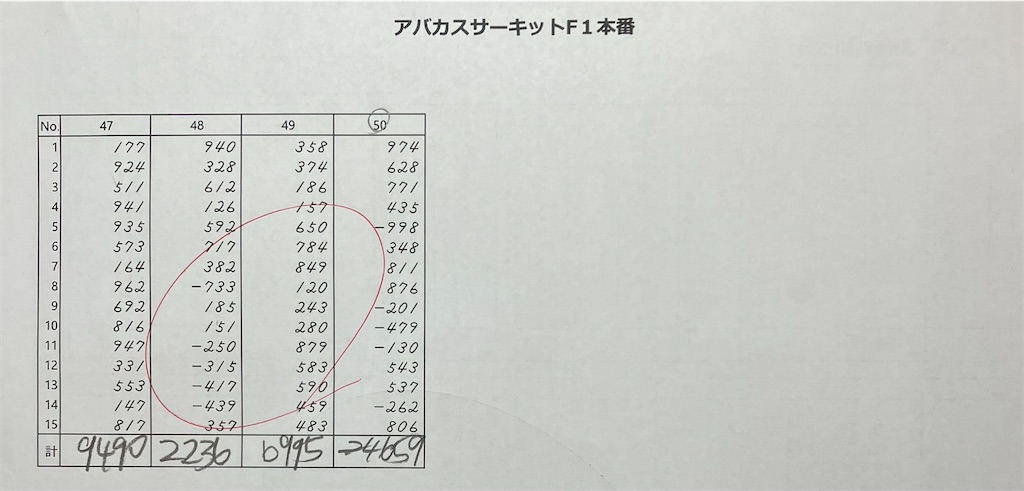 アバカスサーキットF１本番
No. 47 48 49 50
1 177 940 358 974
2 924 328 374 628
3 511 612 186 771
4 941 126 157 435
5 935 592 650 -998
6 573 717 784 348
7 164 382 849 811
8 962 -733 120 876
9 692 185 243 -201
10 816 151 280 -479
11 947 -250 879 -130
12 331 -315 583 543
13 553 -417 590 537
14 147 -439 459 -262
15 817 357 483 806
計 9490 2236 6995 4659